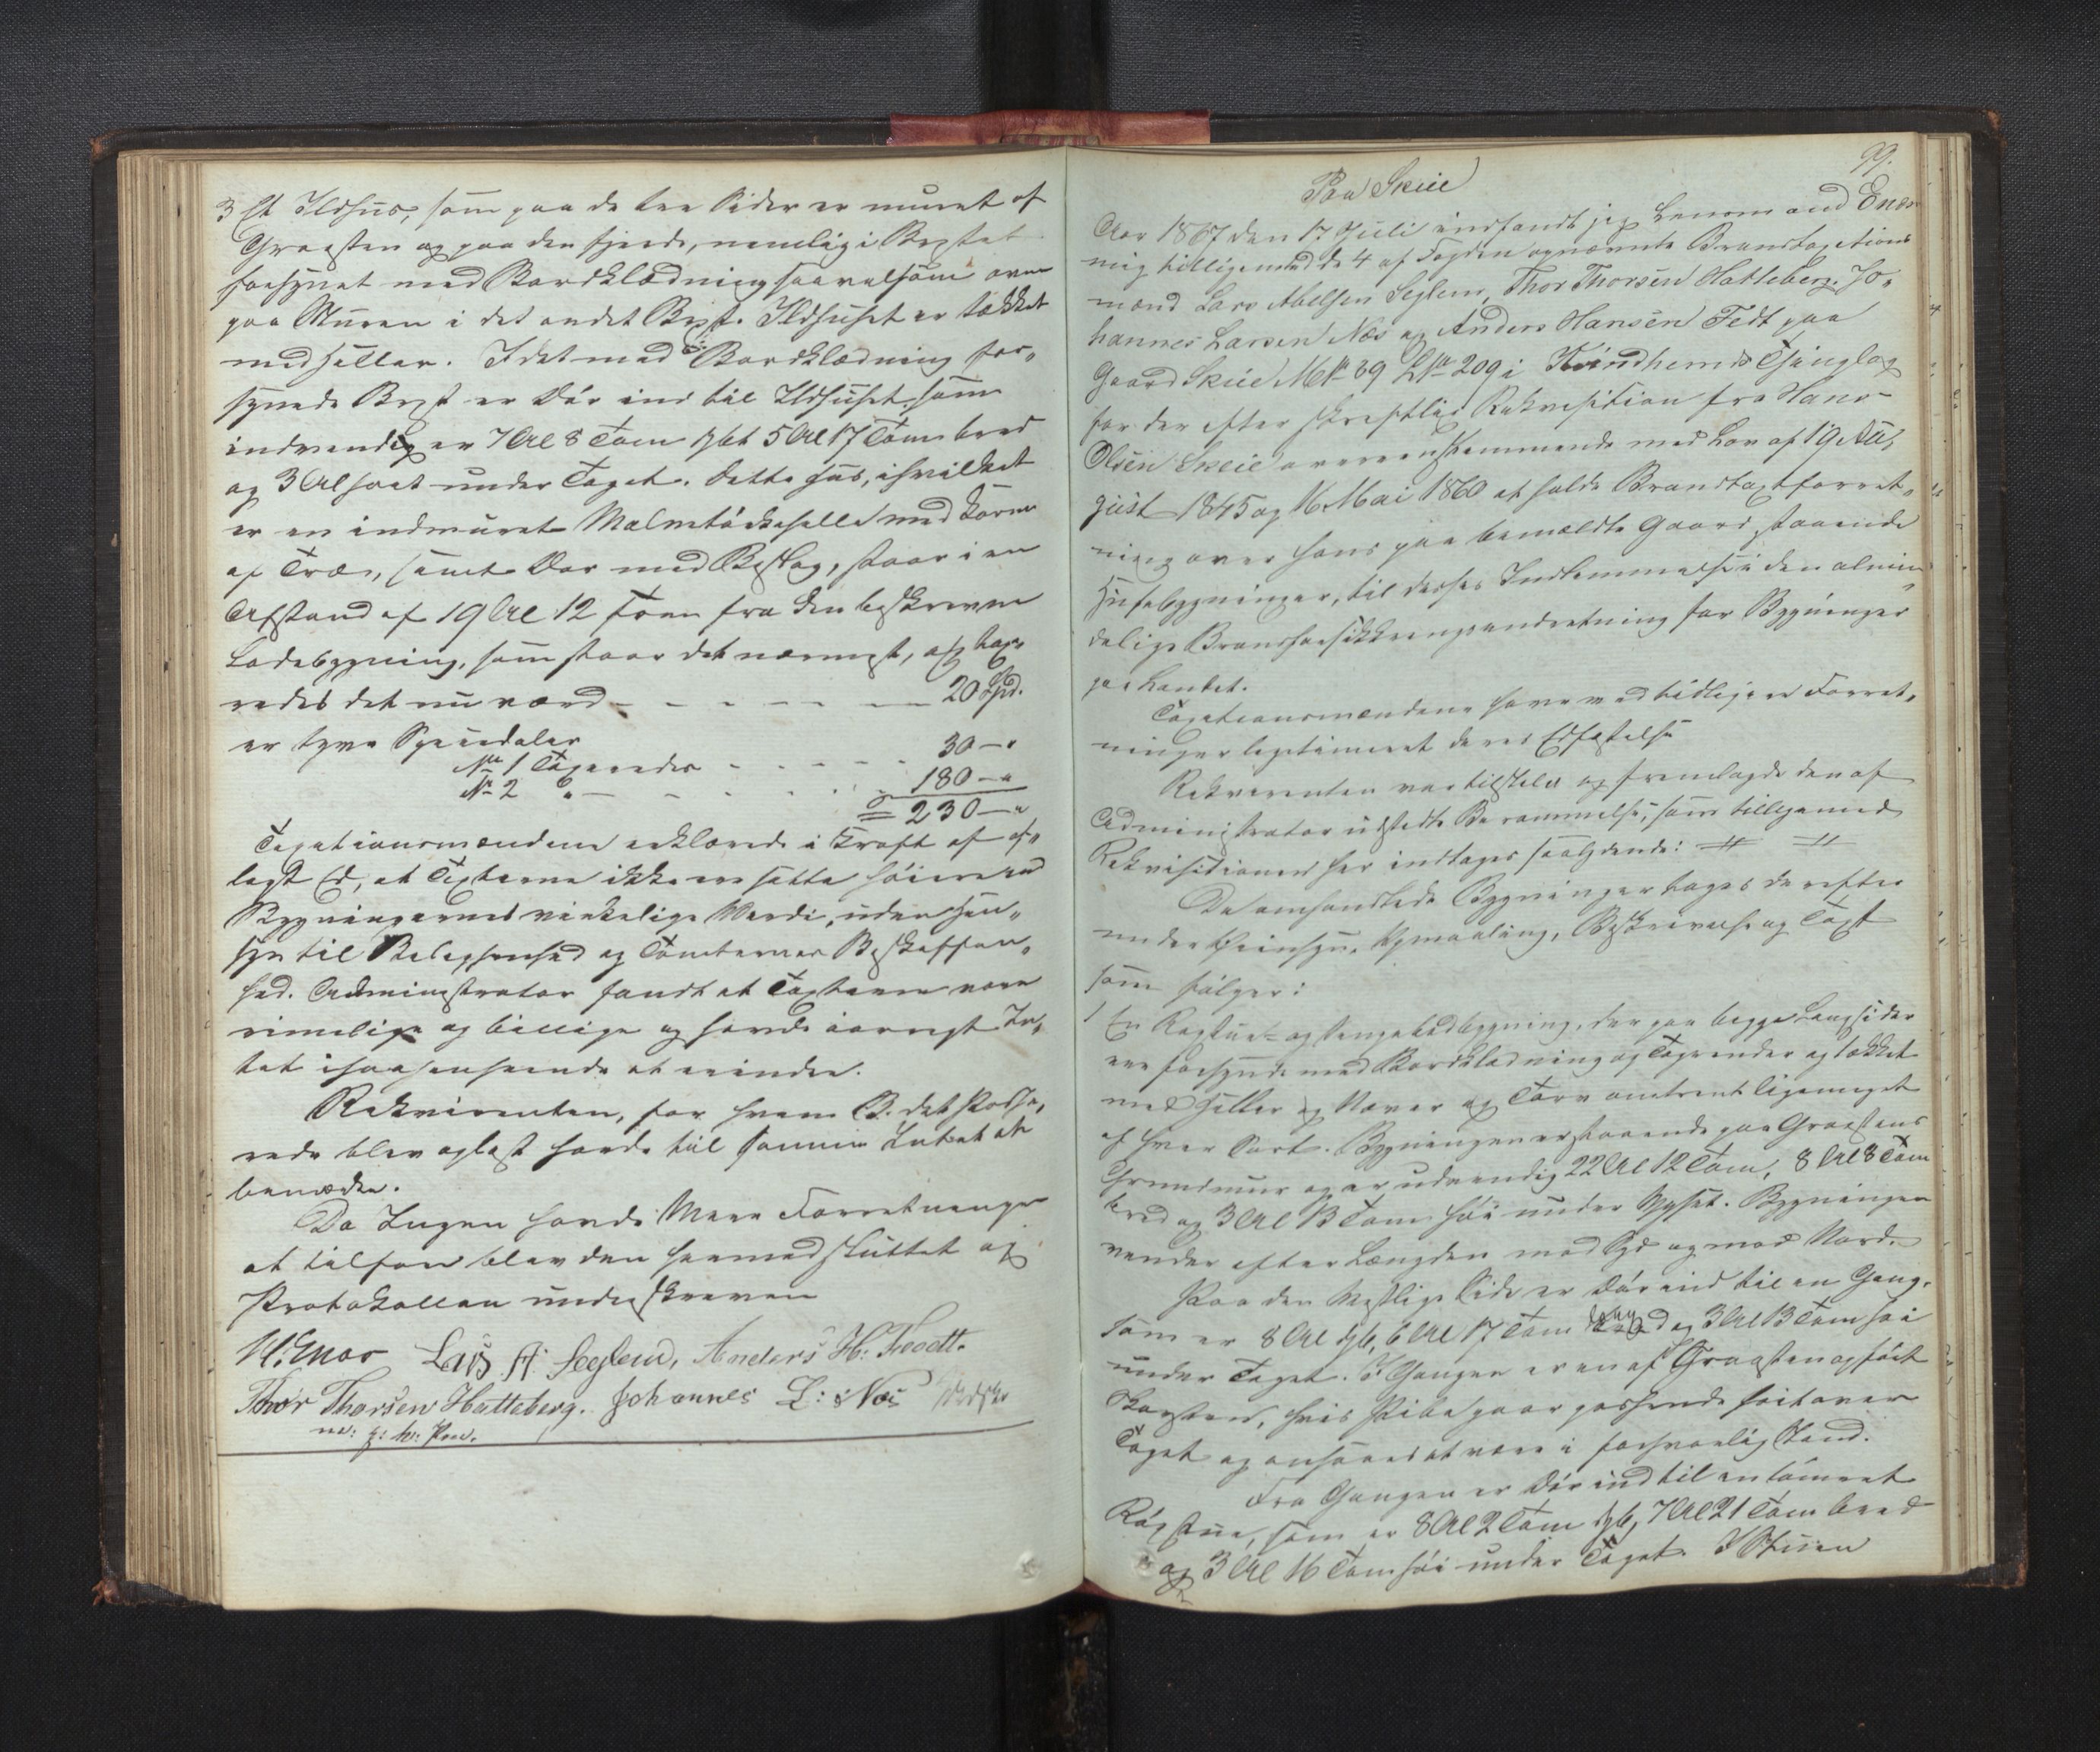 3 Et Ildhus, som paa de tre Sider er muret af
Graasten og paa den fjerde, nemlig i Brystet
forsynet med Bordklædning saavelsom oven
paa Muren i det andet Bryst. Ildhuset er tækket
med heller. I det med Bordklædning for„
synede Bryst er Dör ind til Ildhuset, som
indvendig er 7 Al 8 Tom lgt 5 Al 17 Tom bred
og 3 Al höit under Taget. Dette hus, i hvilket
er en indmuret Malmtörkehelle med Karm
af Træ, samt Dør med Beslag, staar i en
Afstand af 19 Al 12 Tom fra den beskrevne
Ladebygning, som staar det nærmest, og tax„
redes det nu værd - - - - - 20 Spd.
er tyve Speciedaler
No 1 Taxeredes - - - - - 30 - "
No 2 " - - - - - 180 - "
= 230 - "
Taxationsmændene erklærede i Kraft af af„
lagt Ed, at Taxterne ikke ere satte höiere end
Bygningernes virkelige Værdi, uden Hen„
syn til Beliggenhed og Tomternes Beskaffen„
hed. Administrator fandt at Taxterne vare
rimelige og billige og havde iövrigt In„
tet i saahenseende at erindre.
Rekvirenten, for hvem B. det Passe„
rede blev oplæst havde til samme Intet at
bemærke.
Da Ingen havde Mere Forretningen
at tilføre blev den hermed sluttet og
Protokollen underskreven
H. Enæs Lars A. Seglem, Anders H: Toedt.
Thor Thorsen Hatteberg. Johannes L: Næs
m: f: h: Pen.
99.
Paa Skeie
Aar 1867 den 17 Juli indfandt jeg Lensmand Enæs
mig tilligemed de 4 af Fogden opnævnte Brandtaxations
mænd Lars Abelsen Seglem, Thor Thorsen Hatleberg, Jo„
hannes Larsen Næs og Anders Hansen Tedt paa
Gaard Skeie M No 89 L No 209 i Kvindherreds Thinglag
for der efter skriftlig Rekvisition fra Hans
Olsen Skeie overensstemmende med Lov af 19 Au„
gust 1845 og 16 Mai 1860 at holde Brandtaxtforret„
ning over hans paa bemældte Gaard staaende
Husebygninger, til disses Indlemmelse i den almin„
delige Brandforsikkringsindretning for Bygninger
paa Landet.
Taxationsmændene have ved tidligere Forret„
ninger legitimeret deres Edfæstelse
Rekvirenten var tilstede og fremlagde den af
Administrator udstedte Berammelse, som tilligemed
Rekvisitionen her indtages saalydende: # #
De omhandlede Bygninger toges derefter
under Öiesyn, Opmaaling, Beskrivelse og Taxt
som fölger:
1 En Røgstue- og Sengebodbygning, der paa begge Langsider
ere forsynede med Bordklædning og Tagrender og tækket
med Heller og Næver og Torv omtrent ligemeget
af hver Sort. Bygningen er staaende paa Graastens
Grundmur og er udvendig 22 Al 12 Tom, 8 Al 8 Tom
bred og 3 Al 13 Tom höi under Ophæt. Bygningen
vender efter Længden mod Syd og mod Nord.
Paa den Vestlige Side er Dör ind til en Gang,
som er 8 Al lgt, 6 Al 17 Tom bred og 3 Al 13 Tom höi
under Taget. I Gangen er en af Graasten opfört
Skorsten, hvis Pibe gaar passende höit over
Taget og ansaaes at være i forsvarlig Stand.
Fra Gangen er Dör ind til en tömret
Rögstue, som er 8 Al 2 Tom lgt, 7 Al 21 Tom bred
og 3 Al 16 Tom höi under Taget. I Stuen